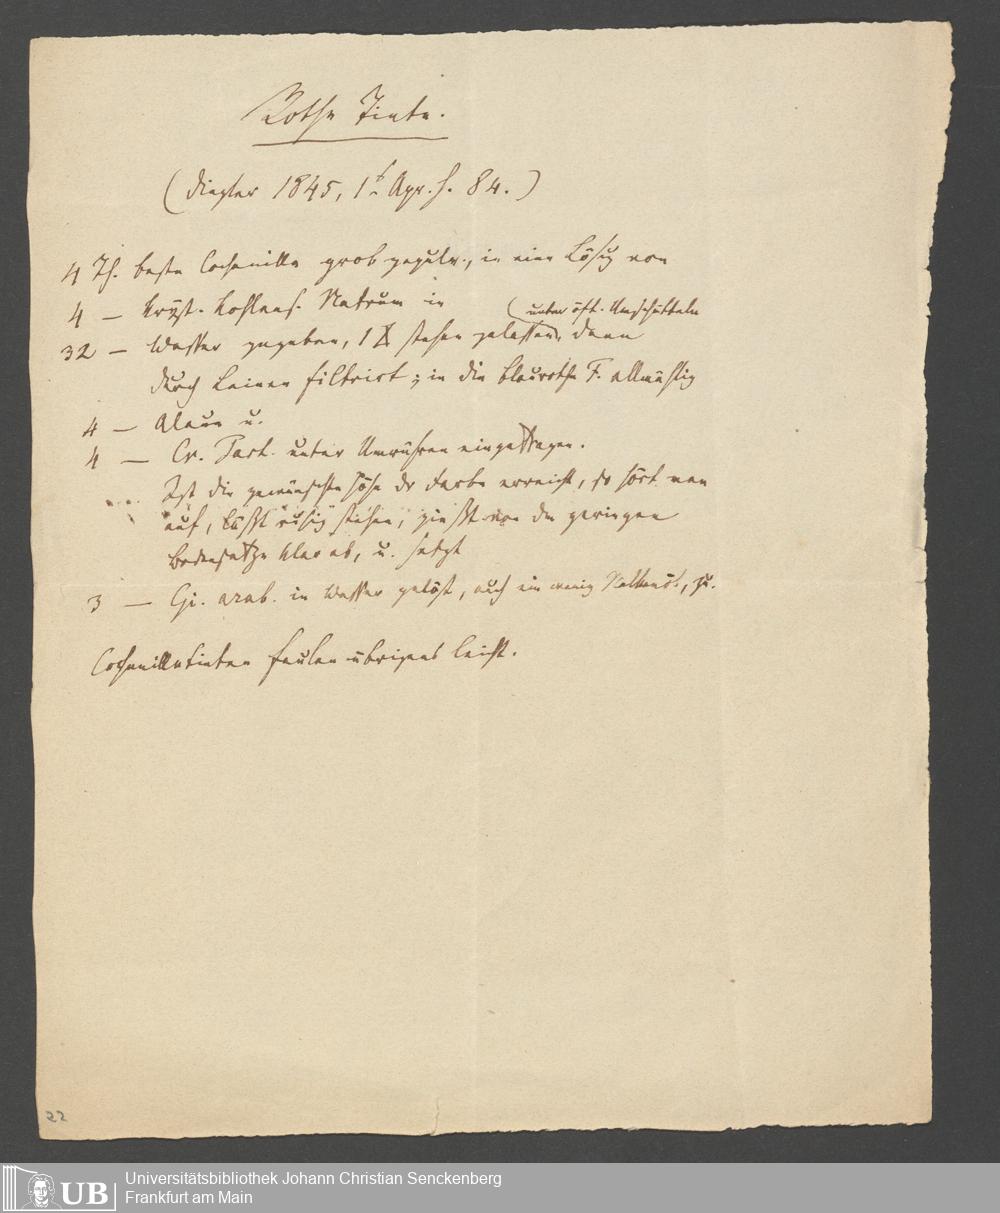 Rothe Tinte.
(Dingler 1845, 1t Apr. S. 84.)
4 Th. beste Cochenille grob gepulv., in eine Lösg von
4 — kryst. kohlens. Natrum in
(unter öft. Umschütteln
32 — Wasser gegeben, 1 stehen gelassen, dann
durch Leinen filtrirt; in die blaurothe F. allmählig
4 — Alaun u.
4 — Cr. Tart. unter Umrühren eingetragen.
Ist die gewünschte Höhe der Farbe erreicht, so hört man
auf, läßt ruhig stehen, gießt von dem geringen
Bodensatze klar ab, u. setzt
3 — Gi. arab. in Wasser gelöst, auch ein wenig Nelkenöl, zu.
Cochenilletinten faulen übrigens leicht.
22
UB
Universitätsbibliothek Johann Christian Senckenberg
Frankfurt am Main